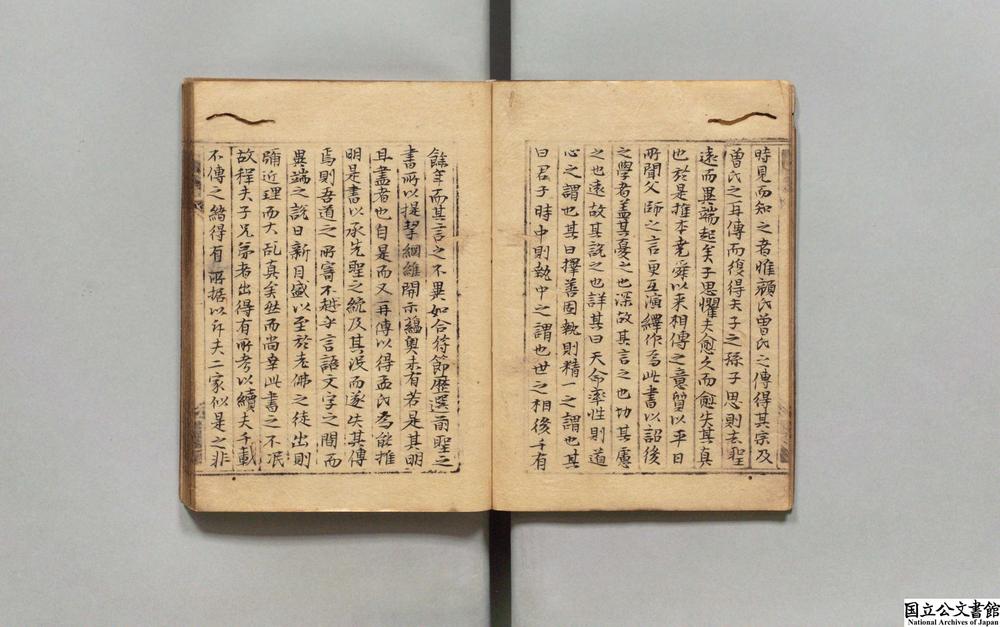 時見而知之者惟顔氏曽氏之傳得其宗及
曽氏之再傳而復得夫子之孫子思則去聖
遠而異端起矣子思懼夫愈久而愈失其真
也於是推本尭舜以来相傳之意質以平日
所聞父師之言更互演繹作為此書以詔後
之學者盖其憂之也深故其言之也切其慮
之也遠故其説之也詳其曰天命率性則道
心之謂也其曰擇善固執則精一之謂也其
曰君子時中則執中之謂也世之相後千有
餘年而其言之不異如合符節歴選前聖之
書所以提挈綱維開示藴奥未有若是其明
且盡者也自是而又再傳以得孟氏為能推
明是書以承先聖之統及其没而遂失其傳
焉則吾道之所寄不越乎言語文字之間而
異端之説日新月盛以至於老佛之徒出則
彌近理而大乱真矣然而尚幸此書之不泯
故程夫子兄弟者出得有所考以續夫千載
不傳之緒得有所据以斥夫二家似是之非
国立公文書館
National Archives of Japan